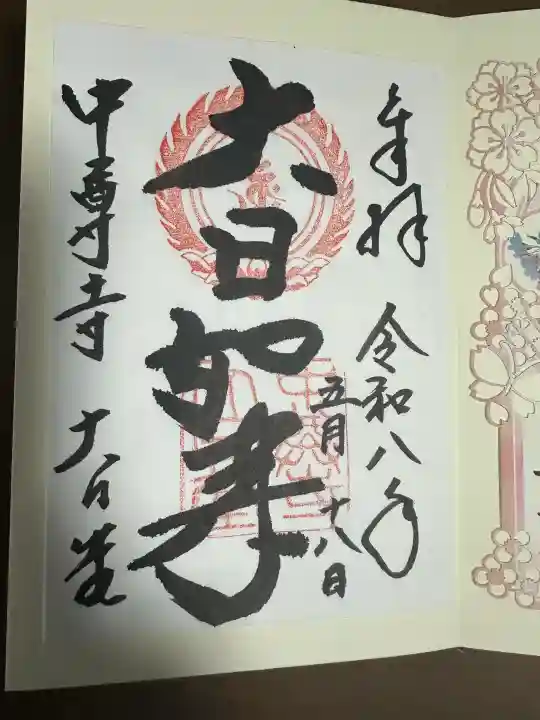 奉拝
令和八年
五月十八日
大日如来
中尊寺 大日堂